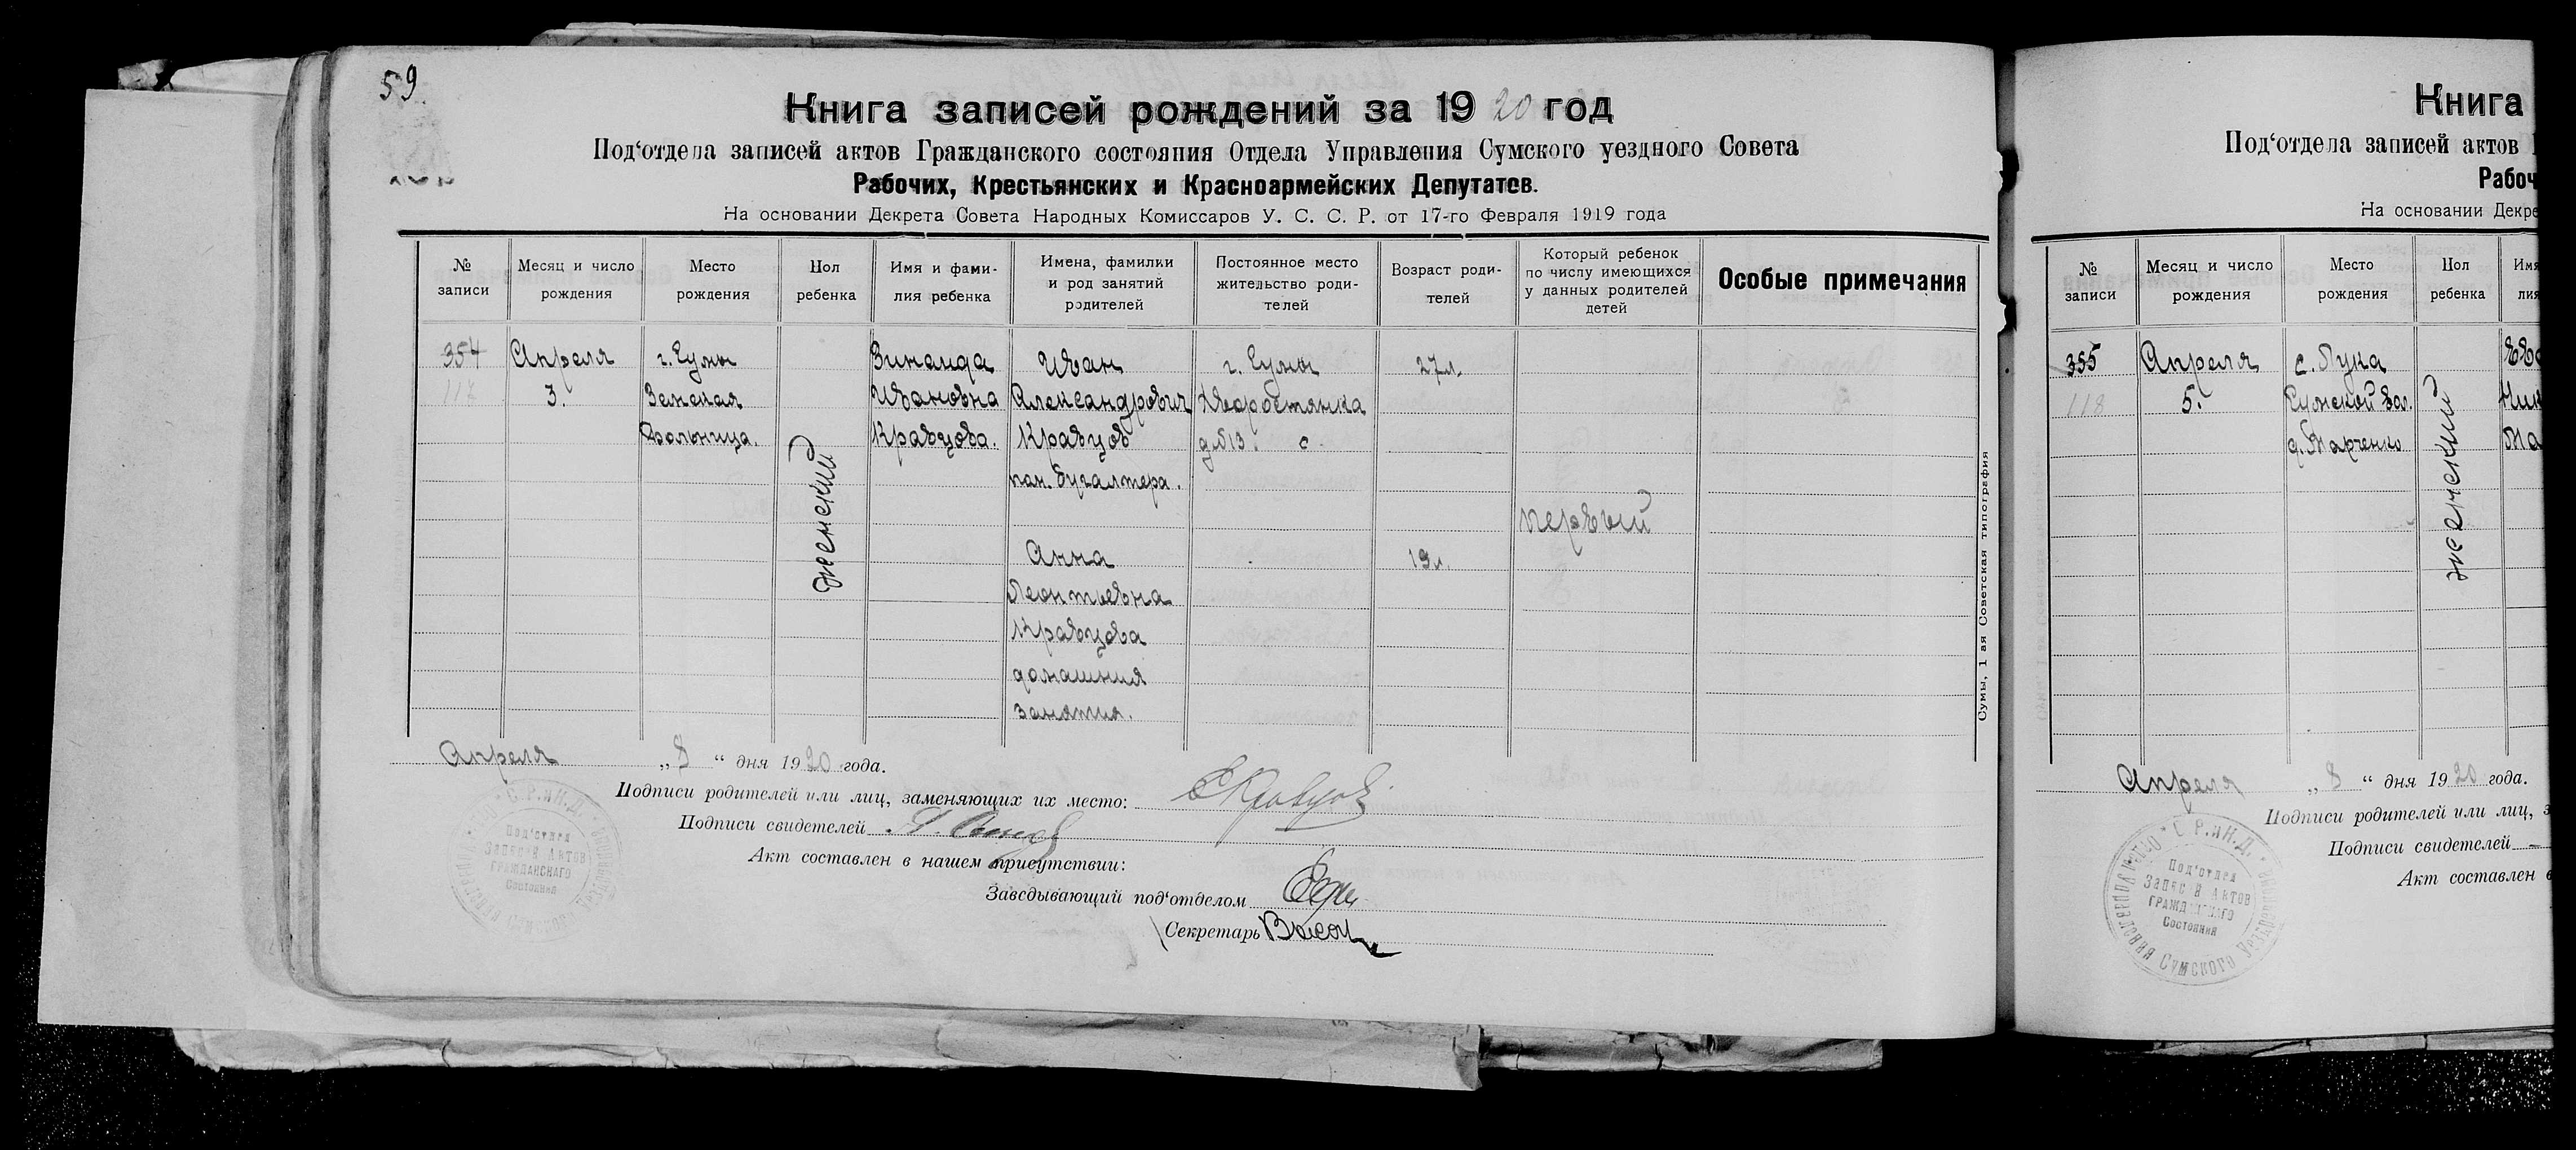 59.
Книга записей рождений за 1920 год
Под‘отдела записей актов Гражданского состояния Отдела Управления Сумского уездного Совета
Рабочих, Крестьянских и Красноармейских Депутатов.
На основании Декрета Совета Народных Комиссаров У. С. С. Р. от 17-го Февраля 1919 года
№ записи
Месяц и число рождения
Место рождения
Пол ребенка
Имя и фами-
лия ребенка
Имена, фамилии
и род занятий
родителей
Постоянное место
жительство роди-
телей
Возраст роди-
телей
Который ребенок
по числу имеющихся
у данных родителей
детей
Особые примечания
354
117
Апреля
3.
г. Сумы
Земская
больница.
женский
Зинаида
Ивановна
Кравцова.
Иван
Александрович
Кравцов
пом. бугалтера.
Анна
Леонтьевна
Кравцова
домашния
занятия.
г. Сумы
д №13.
27л.
19л.
первый
Сумы, 1 ая Советская типография
Апреля „8“ дня 1920 года.
Подписи родителей или лиц, заменяющих их место: Кравцов
Подписи свидетелей
Акт составлен в нашем присутствии:
Заведывающий под‘отделом
Секретарь
Под‘отдел
Записей Актов
ГРАЖДАНСКАГО
Состояния
Книга
Под‘отдела записей актов
Рабоч
На основании Декре
№ записи
Месяц и число рождения
Место рождения
Пол ребенка
Имя
лия
355
118
Апреля
5.
с. Лука
Сумской вол.
женский
Апреля „8“ дня 1920 года.
Подписи родителей или лиц, з
Подписи свидетелей
Акт составлен в
С.Р.иК.Д.
Под‘отдел
Записей Актов
ГРАЖДАНСКАГО
Состояния
Сумского Уезд